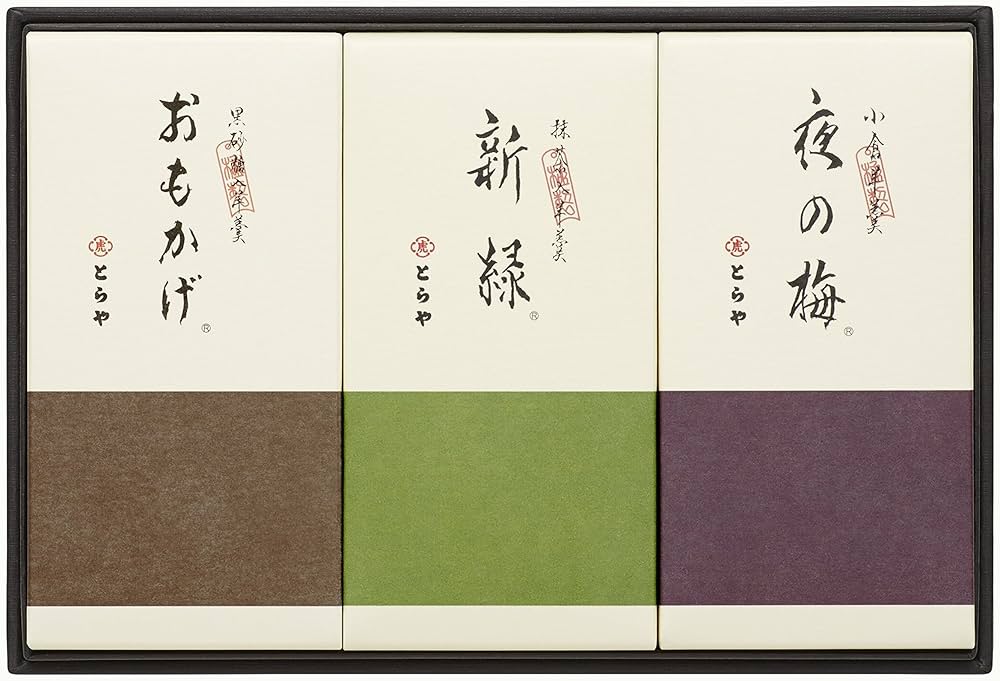 夜の梅®
小倉羊羹
虎 とらや
新緑®
抹茶入羊羹
虎 とらや
おもかげ®
黒砂糖入羊羹
虎 とらや